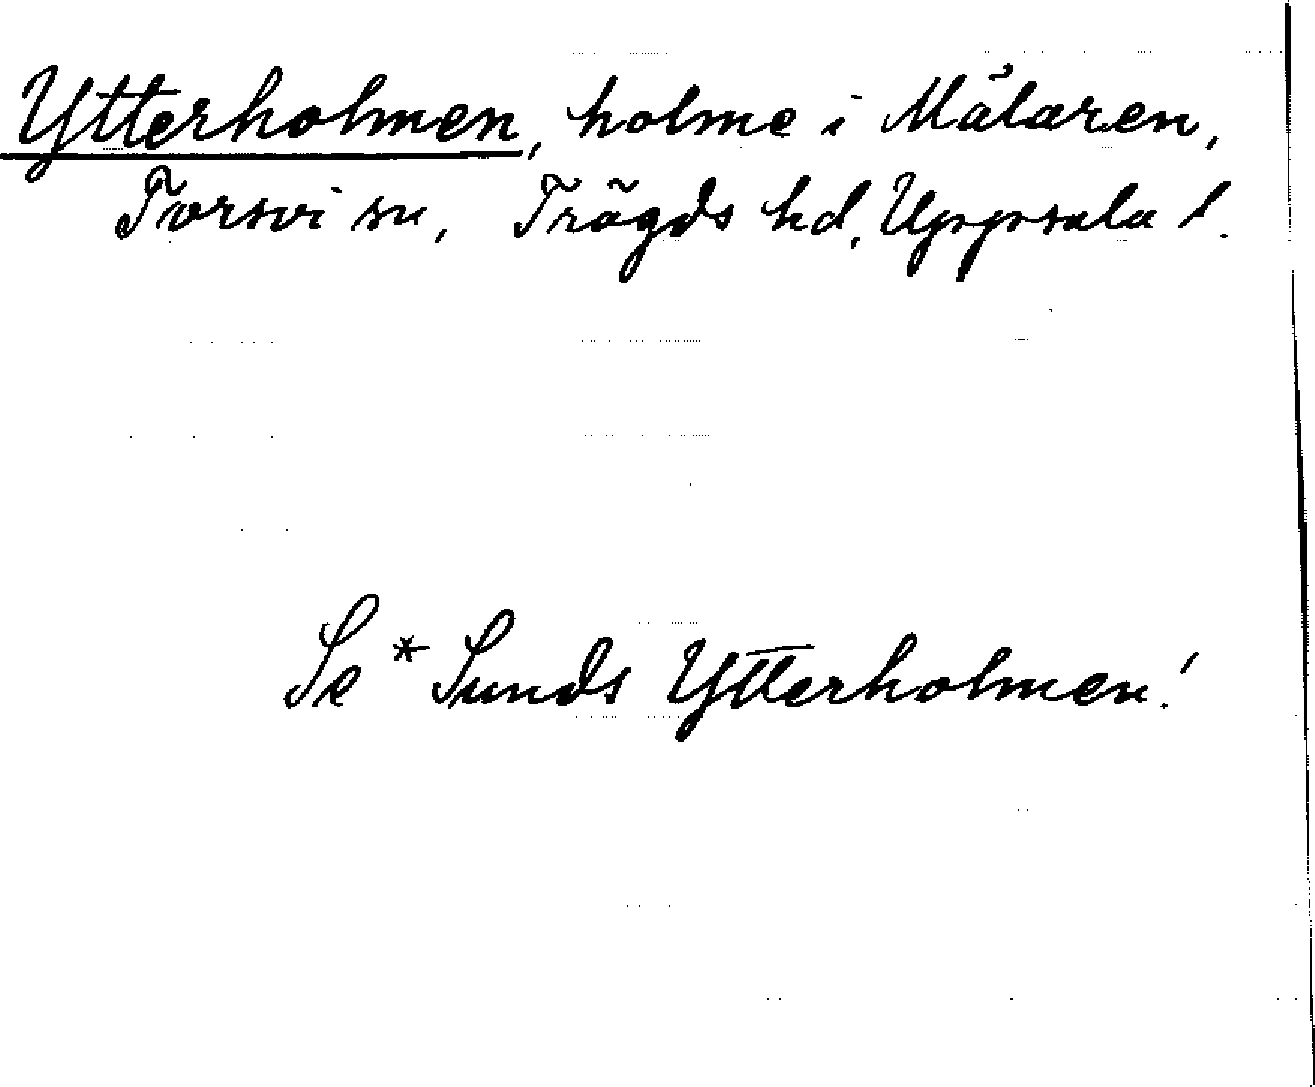 Ytterholmen, holme i Mälaren,
Torsvi sn, Trögds hd, Uppsala l.
Se * Sunds Ytterholmen!